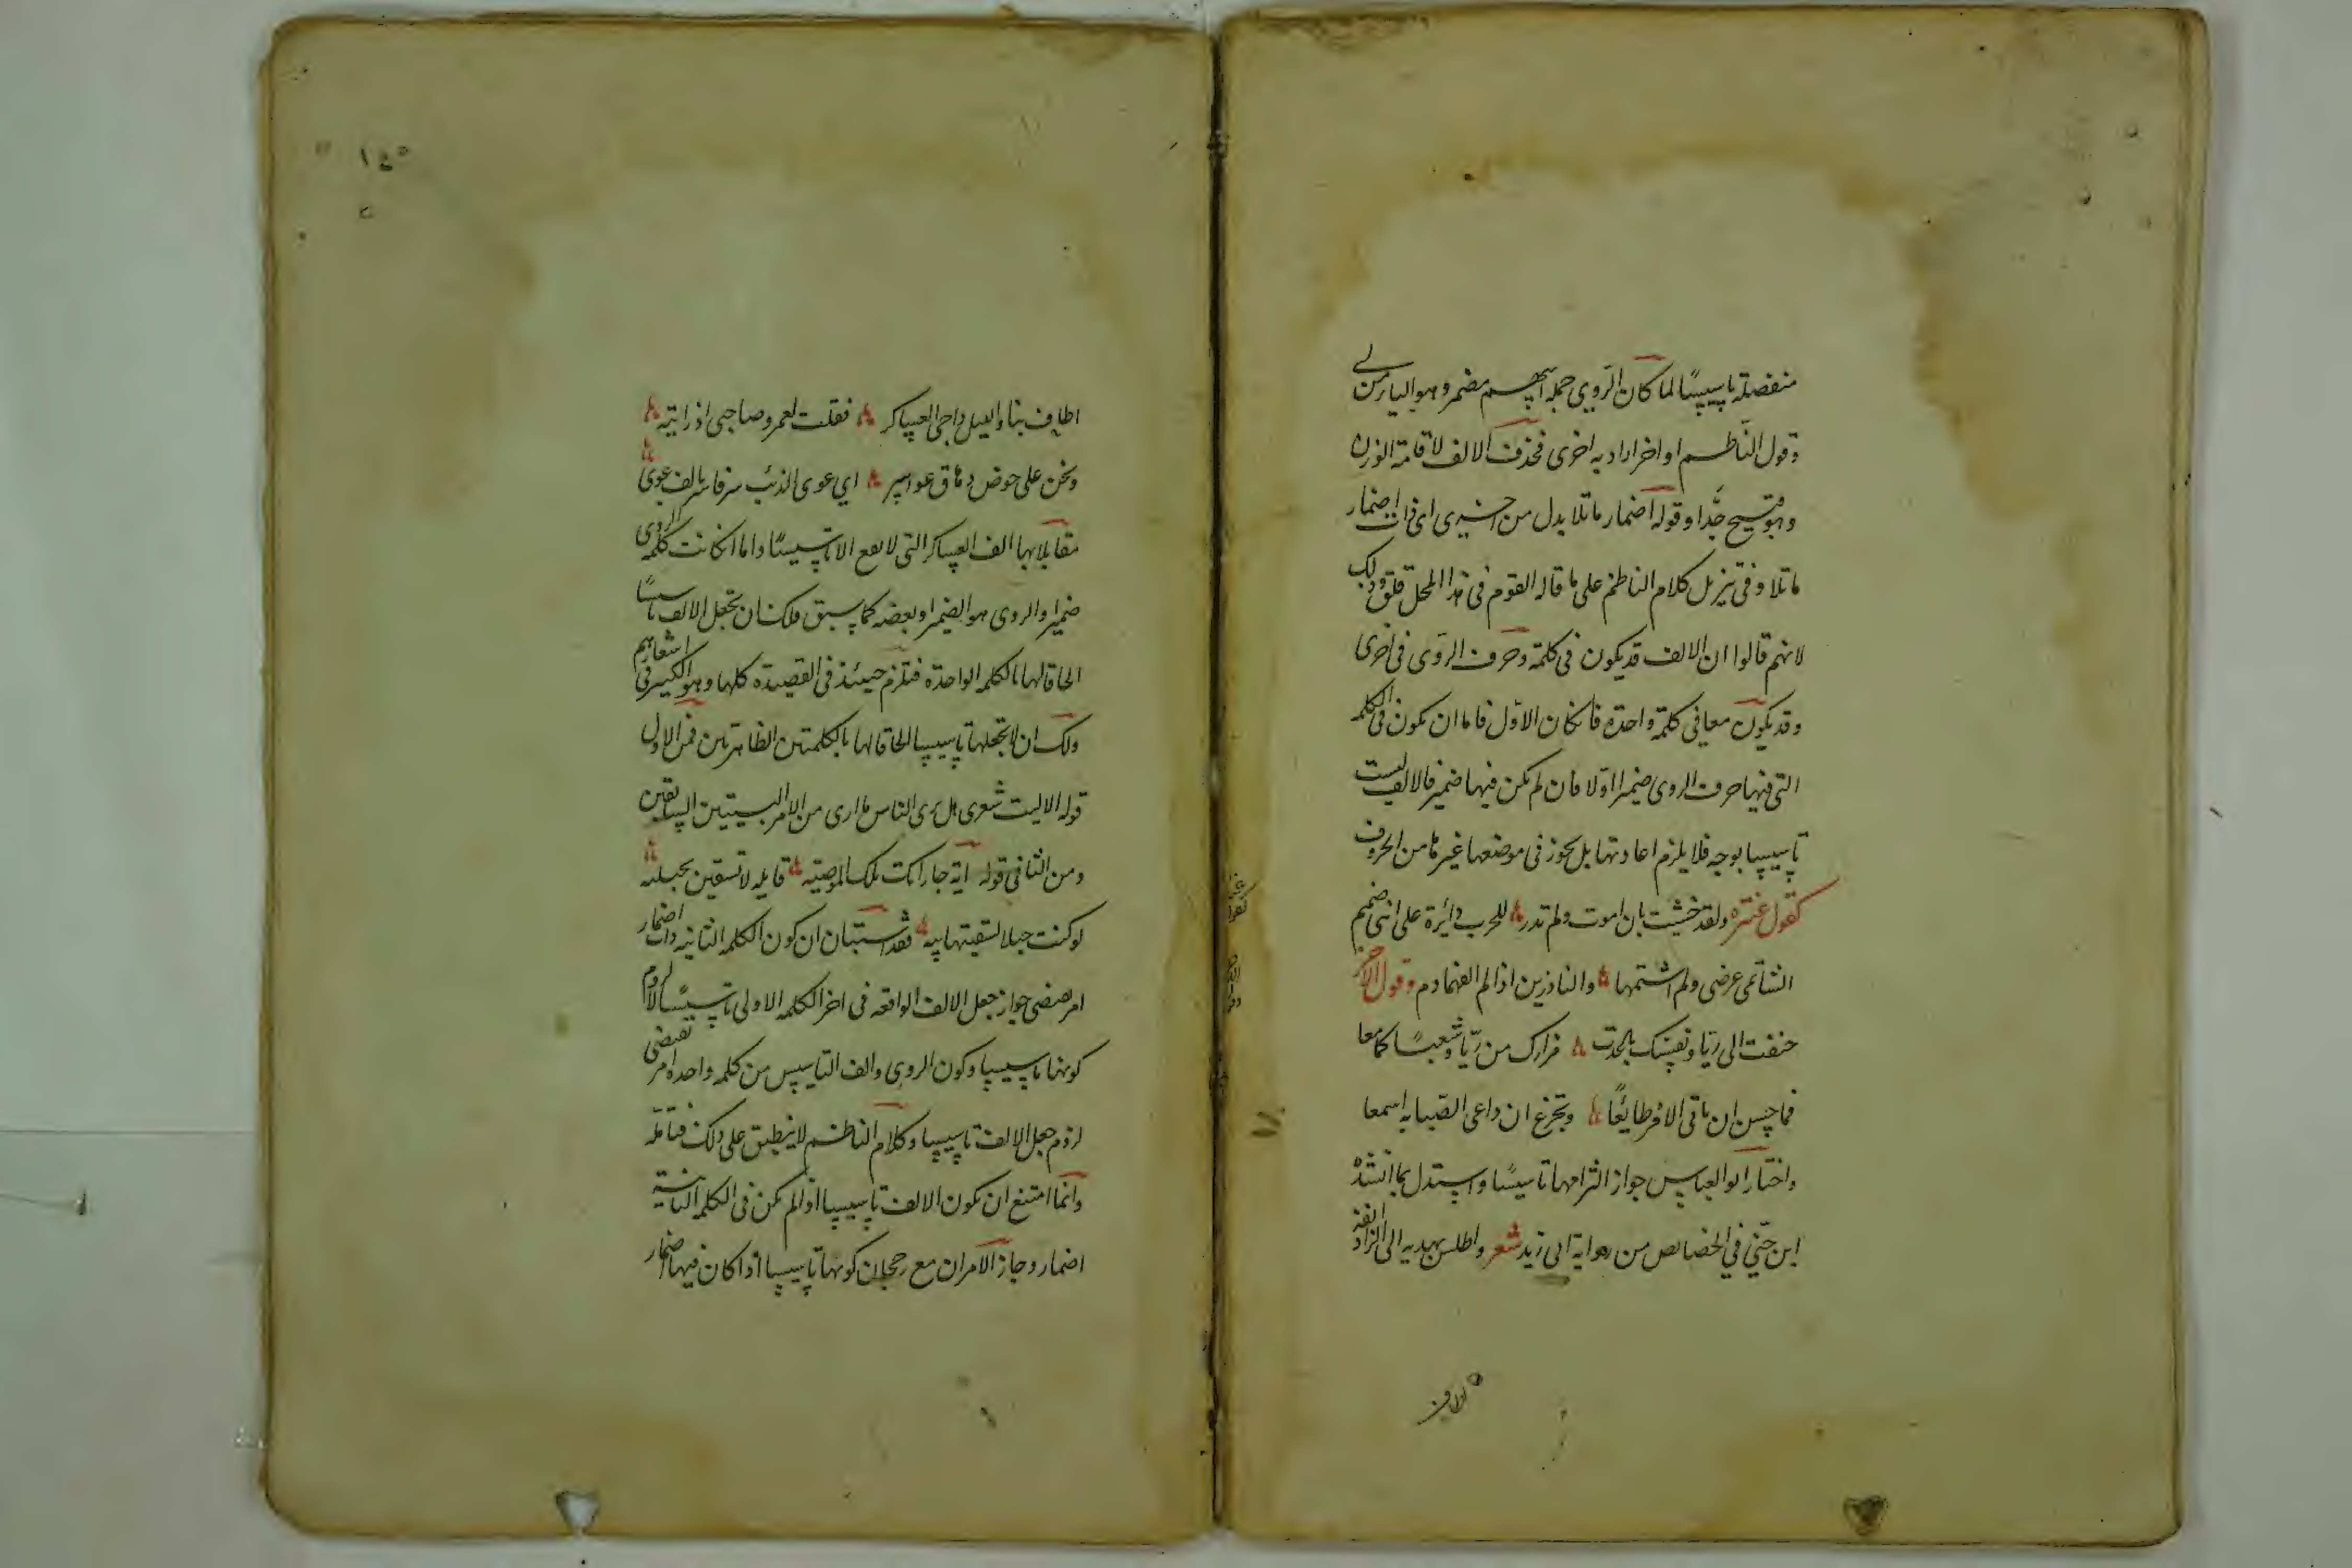 منفصلة تاسيسًا لما كان الروي جملة اسم مضمر وهو الياء من لي
وقول الناظم او اخر اراد به اخرى فحذف الالف لاقامة الوزن
وهو قبيح جدًّا وقوله اضمار ما تلا بدل من اخرى اي ذات اضمار
ما تلا وفي تنزيل كلام الناظم على ما قاله القوم في هذا المحل قلق وذلك
لانهم قالوا ان الالف قد يكون في كلمة وحرف الروي في اخرى
وقد يكون معا في كلمة واحدة فانكان الاول فاما ان يكون في الكلمة
التي فيها حرف الروي ضمير اولا فان لم يكن فيها ضمير فالالف ليست
تاسيسا بوجه فلا يلزم اعادتها بل يجوز في موضعها غيرها من الحروف
كقول عنتره ولقد خشيت بان اموت ولم تدر للحرب دائرة على ابني ضمضم
الشاتمي عرضي ولم اشتمهما والناذرين اذا لم القهما دم وقول الآخر
حننت الى ريّا ونفسك باعدت مزارك من ريّا وشعباكما معا
فما حسن ان تاتي الامر طائعًا وتجزع ان داعي الصبابه اسمعا
واختار ابو العباس جواز التزامها تاسيسًا واستدل بما انشده
ابن جني في الخصائص من رواية ابي زيد شعر واطلس يهديه الى الزاد انفه
اطاف
اطاف بنا والليل داجي العساكر فقلت لعمرو صاحبي اذ رايته
ونحن على خوص دقاق عواسر اي عوى الذئب سر فاسر بالف عوى
مقابلا بها الف العساكر التي لا تقع الا تاسيسًا واما انكانت كلمة الروي
ضميرا والروي هو الضمير او بعضه كما سبق فلك ان تجعل الالف تاسيسًا
الحاقا لها بالكلمه الواحدة فتلزم حينئذ في القصيدة كلها وهو الكثير في اشعارهم
ولك ان لا تجعلها تاسيسا الحاقا لها بالكلمتين الظاهرتين فمن الاول
قوله الا ليت شعري هل يرى الناس ما ارى من الامر البيتين السابقين
ومن الثاني قوله اية جاراتك تلك الموصيه قايله لا تسقين بحبليه
لو كنت حبلا لسقيتها بيه فقد استبان ان كون الكلمة الثانيه ذات اضمار
امر يقتضي جواز جعل الالف الواقعه في اخر الكلمه الاولى تاسيسًا لا لزوم
كونها تاسيسا وكون الروي والف التاسيس من كلمه واحده امر يقتضي
لزوم جعل الالف تاسيسا وكلام الناظم لا ينطبق على ذلك فتامله
وانما امتنع ان يكون الالف تاسيسا اذا لم يكن في الكلمه الثانية
اضمار وجاز الامران مع رجحان كونها تاسيسا اذا كان فيها اضمار